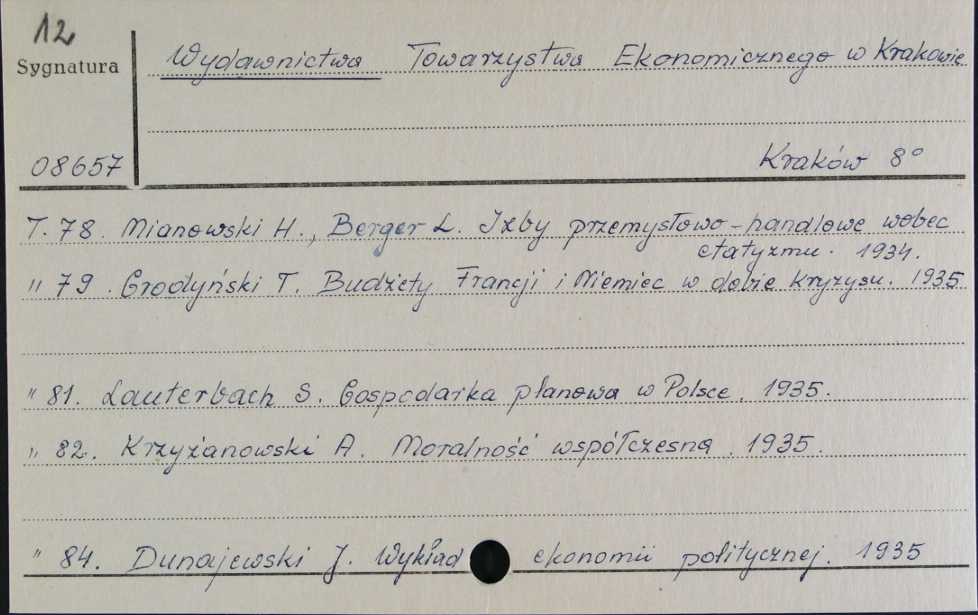 12
Sygnatura
Wydawnictwa Towarzystwa Ekonomicznego w Krakowie
08657
Kraków 8°
T. 78. Mianowski H., Berger L. Izby przemysłowo-handlowe wobec
etatyzmu. 1934.
" 79. Grodyński T. Budżety Francji i Niemiec w dobie kryzysu. 1935
" 81. Lauterbach S. Gospodarka planowa w Polsce. 1935.
" 82. Krzyżanowski A. Moralność współczesna. 1935.
" 84. Dunajewski J. Wykład ekonomii politycznej. 1935